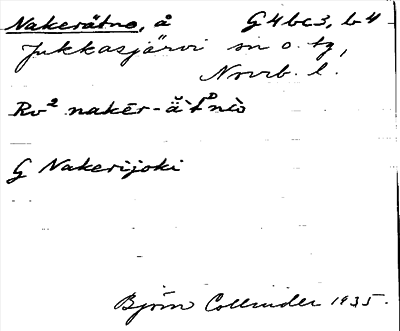 Nakerätno, å G4bc3, b4
Jukkasjärvi sn o. tg,
Norrb. l.
Rv² nakēr-ä̆tᴅnò
G Nakerijoki
Björn Collinder 1935.